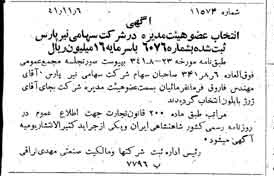 شماره ۱۱۵۷۴ ۴۱ر۱۱ر۶
آگهی
انتخاب عضو هیئت مدیره در شرکت سهامی نیرپارس
ثبت شده بشماره ۶۰۷۶ با سرمایه ۱۶ میلیون ریال
طبق نامه مورخه ۲۳-۸-۳۴۱ بپیوست صورتجلسه مجمع عمومی
فوق‌العاده ۶ر۸ر۳۴۱ صاحبان سهام شرکت سهامی نیر پارس آقای
مهندس فاروق فرمانفرمائیان بسمت عضو هیئت مدیره شرکت بجای آقای
ژرژ بابلون انتخاب گردیده‌اند
مراتب طبق ماده ۲۰۰ قانون تجارت جهت اطلاع عموم در
روزنامه رسمی کشور شاهنشاهی ایران ویکی از جراید کثیرالانتشار یومیه
آگهی میشود
رئیس اداره ثبت شرکتها و مالکیت صنعتی مهدی نراقی
ب ۷۷۹۶